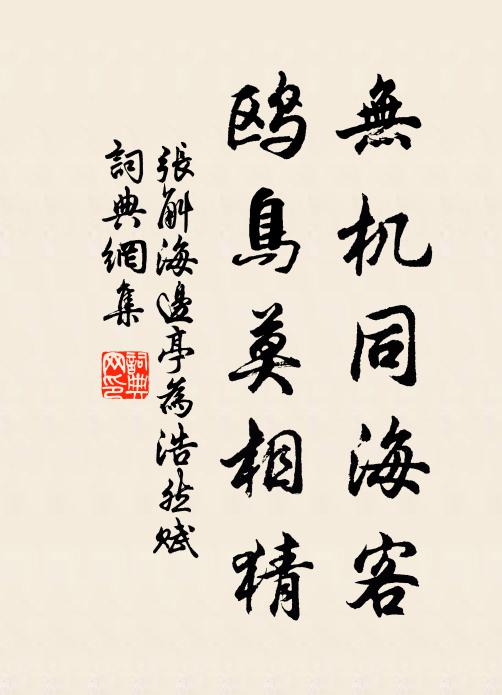 無机同海客
鸥鳥莫相猜
張斛海邊亭為浩然賦
詞典網集
詞典網印